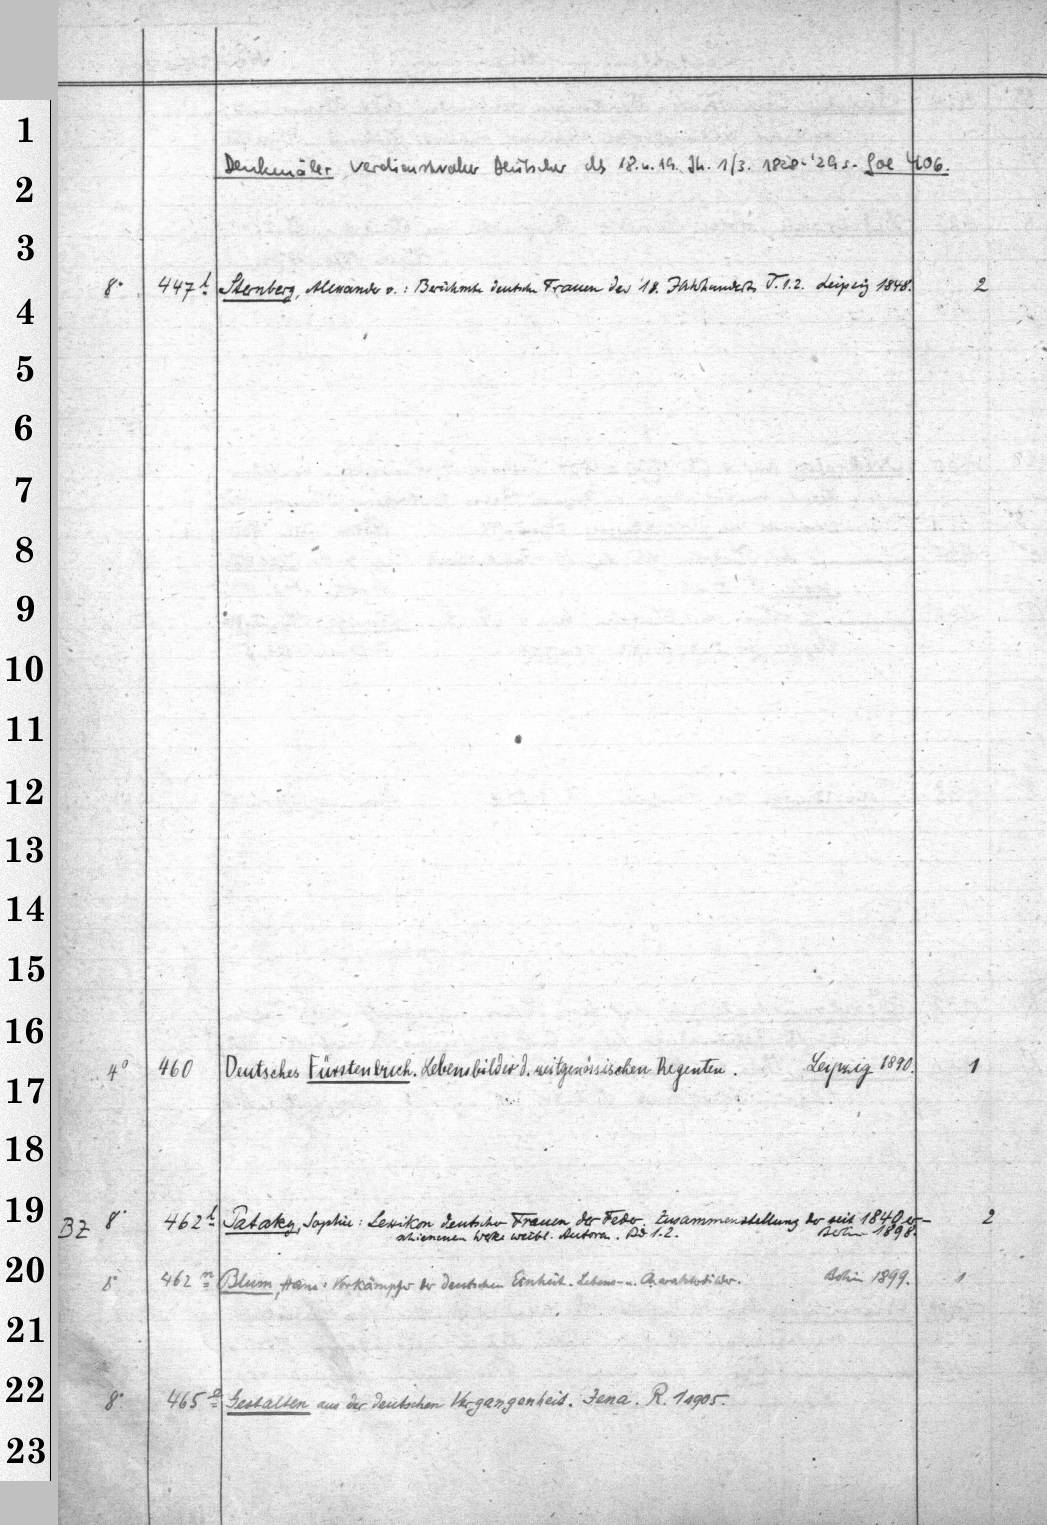 1
2
3
4
5
6
7
8
9
10
11
12
13
14
15
16
17
18
19
20
21
22
23
Denkmäler verdienstvoller Deutscher des 18. u. 19. Jh. 1/3. 1828-'29 s. 406.
8° 447 l Sternberg, Alexander v. : Berühmte deutsche Frauen des 18. Jahrhunderts T. 1.2. Leipzig 1848. 2
4° 460 Deutsches Fürstenbuch. Lebensbilder d. zeitgenössischen Regenten. Leipzig 1890. 1
BZ 8° 462 l Pataky, Sophie: Lexikon deutscher Frauen der Feder. Zusammenstellung der seit 1840 er-
schienenen Werke weibl. Autoren. Bd 1.2. Berlin 1898. 2
8° 462 m Blum, Hans: Vorkämpfer der deutschen Einheit. Lebens- u. Charakterbilder. Berlin 1899. 1
8° 465 a Gestalten aus der deutschen Vergangenheit. Jena. R. 1 1905.